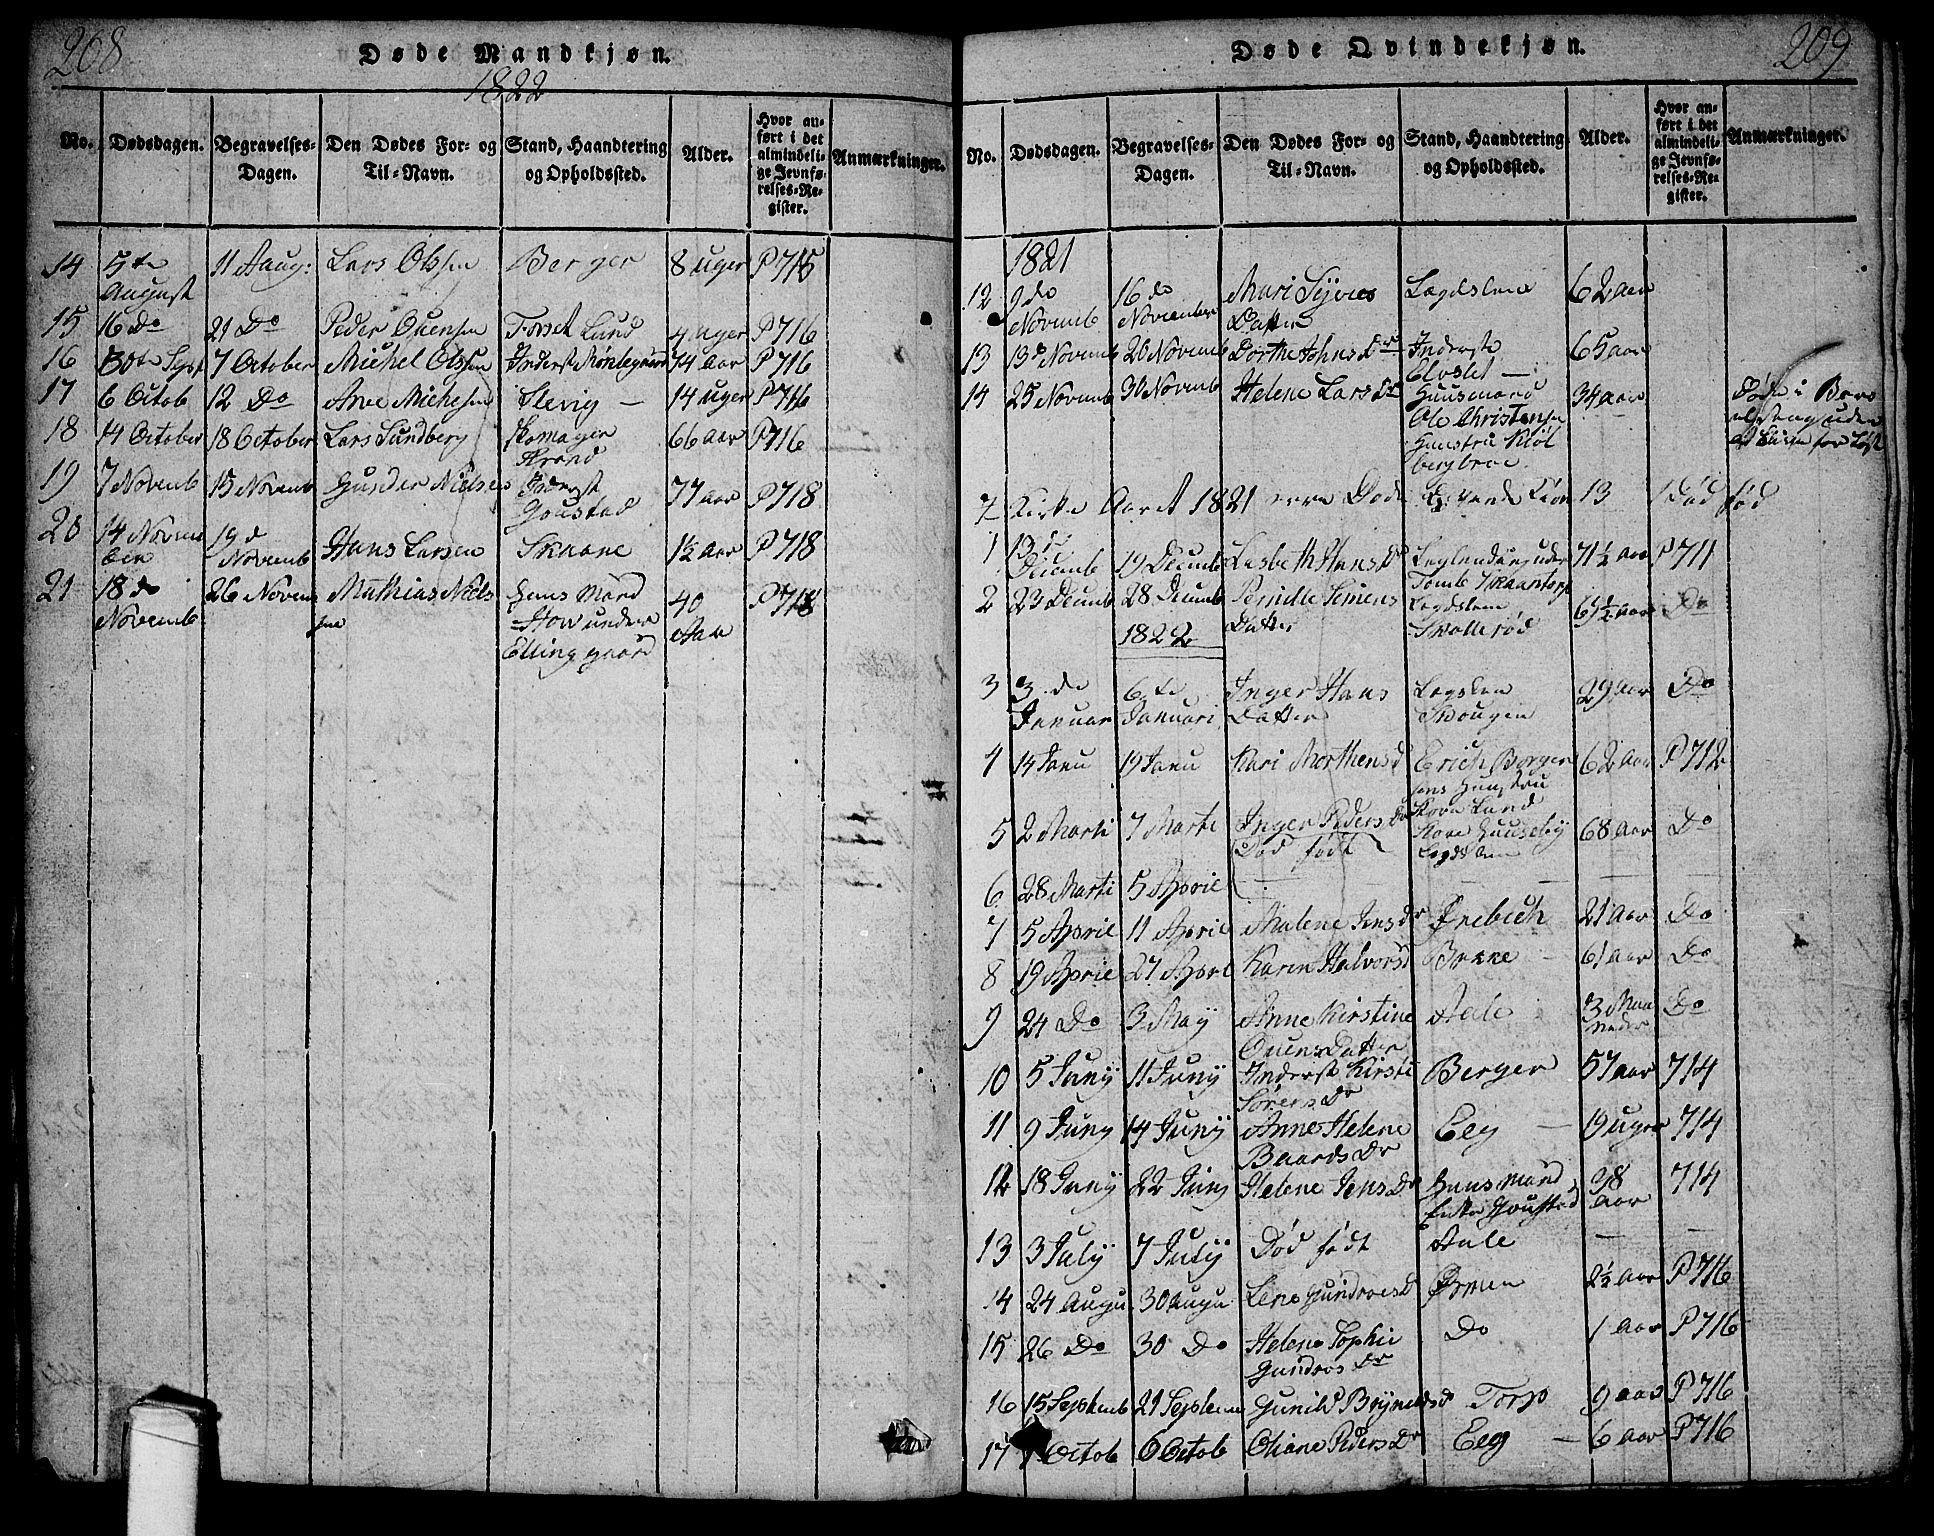 208
Døde Mandkjøn.
1822
No. Dødsdagen. Begravelses-Dagen. Den Dødes For- og Til-Navn. Stand, Haandtering og Opholdssted. Alder. Hvor anført i det almindelige Jevnførelses-Register. Anmærkninger.
14 5te August 11 Aaug: Lars Olssen Berger 8 uger P 715
15 16 Do 21 Do Peder Ouensen Lund 4 uger P 716
16 30te Sept 7 October Michel Olssen Inderst 74 aar P 716
17 6 Octob 12 Do Arve Michelsen Slevig 14 uger P 716
18 14 October 18 October Lars Sundberg Skomager 66 aar P 716
19 7 Novemb 15 Novemb Gunder Nielsen Inderst Goustad 77 aar P 718
20 14 November 19 d Novemb Hans Larsen Skaane 1½ aar P 718
21 18 do Novemb 26 Novem Mathias Nielssen Huus Mand How under Ellinggaard 40 Aar P 718
209
Døde Qvindekjøn.
No. Dødsdagen. Begravelses-Dagen. Den Dødes For- og Til-Navn. Stand, Haandtering og Opholdssted. Alder. Hvor anført i det almindelige Jevnførelses-Register. Anmærkninger.
1821
12 9 do Novemb 16 do November Mari Datter Lægdslem 62 aar
13 13 d Novemb 20 Novemb Dorthe Johns Dr Inderste 65 aar
14 25 Novemb 30 Novemb Helene Lars Dr Huusmand Ole Christensen Huustru 34 aar Døde i
Kirke Aaret 1821 Døde Kiøn 13 1 Død fød
1 13 d Decemb 19 Decemb Lisbeth Hans D 71½ aar P 711
2 23 Decemb 28 Decemb Pernille Simens Datter Lægdslem Skollerød 61½ aar Do
1822
3 3 de Januar 6 te Januari Inger Hans Datter Lægslem Skougen 29 aar Do
4 14 Janu 19 Janu Kari Morthens d Erich Borgersens Huustru Lund 62 aar P 712
5 2 Marti 7 Marti Inger Peders Dr Huuseby Lægdslem 68 aar Do
6 28 Marti 5 Aprie Død født
7 5 Aprie 11 Aprie Malene Jens Dr Ørebech 21 aar Do
8 19 Aprie 27 Aprl Karen Halvors D Brekke 61 aar Do
9 24 Do 3 May Anne Kirstine Ouens Datter Aale 3 Maaneder Do
10 5 Juny 11 Juny Inderst Kirsti Sørens Dr Berger 57 aar 714
11 9 Juny 14 Juny Anne Helene Baards Dr Eeg 19 uger 714
12 18 Juny 22 Juny Helene Jens Dr Huus mand Enke Goustad 38 Aar 714
13 3 July 7 July Død født Aale
14 24 Augu 30 Augu Lene Gundroes D Ørmen 2½ aar P 716
15 26 Do 30 Do Helene Sophie Gundros Dr Do 1 aar P 716
16 15 Septemb 21 Septem Gunild Brynelds d Torp 9 aar P 716
17 Octob 6 Octob Oliane Peders Dr Eeg 6 aar P 716